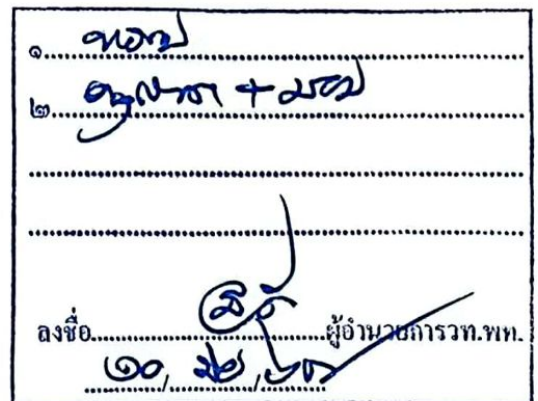 ๑. ทราบ
๒. อนุญาต + มอบ
ลงชื่อ ผู้อำนวยการวท.พท.
๑๐, มิย,